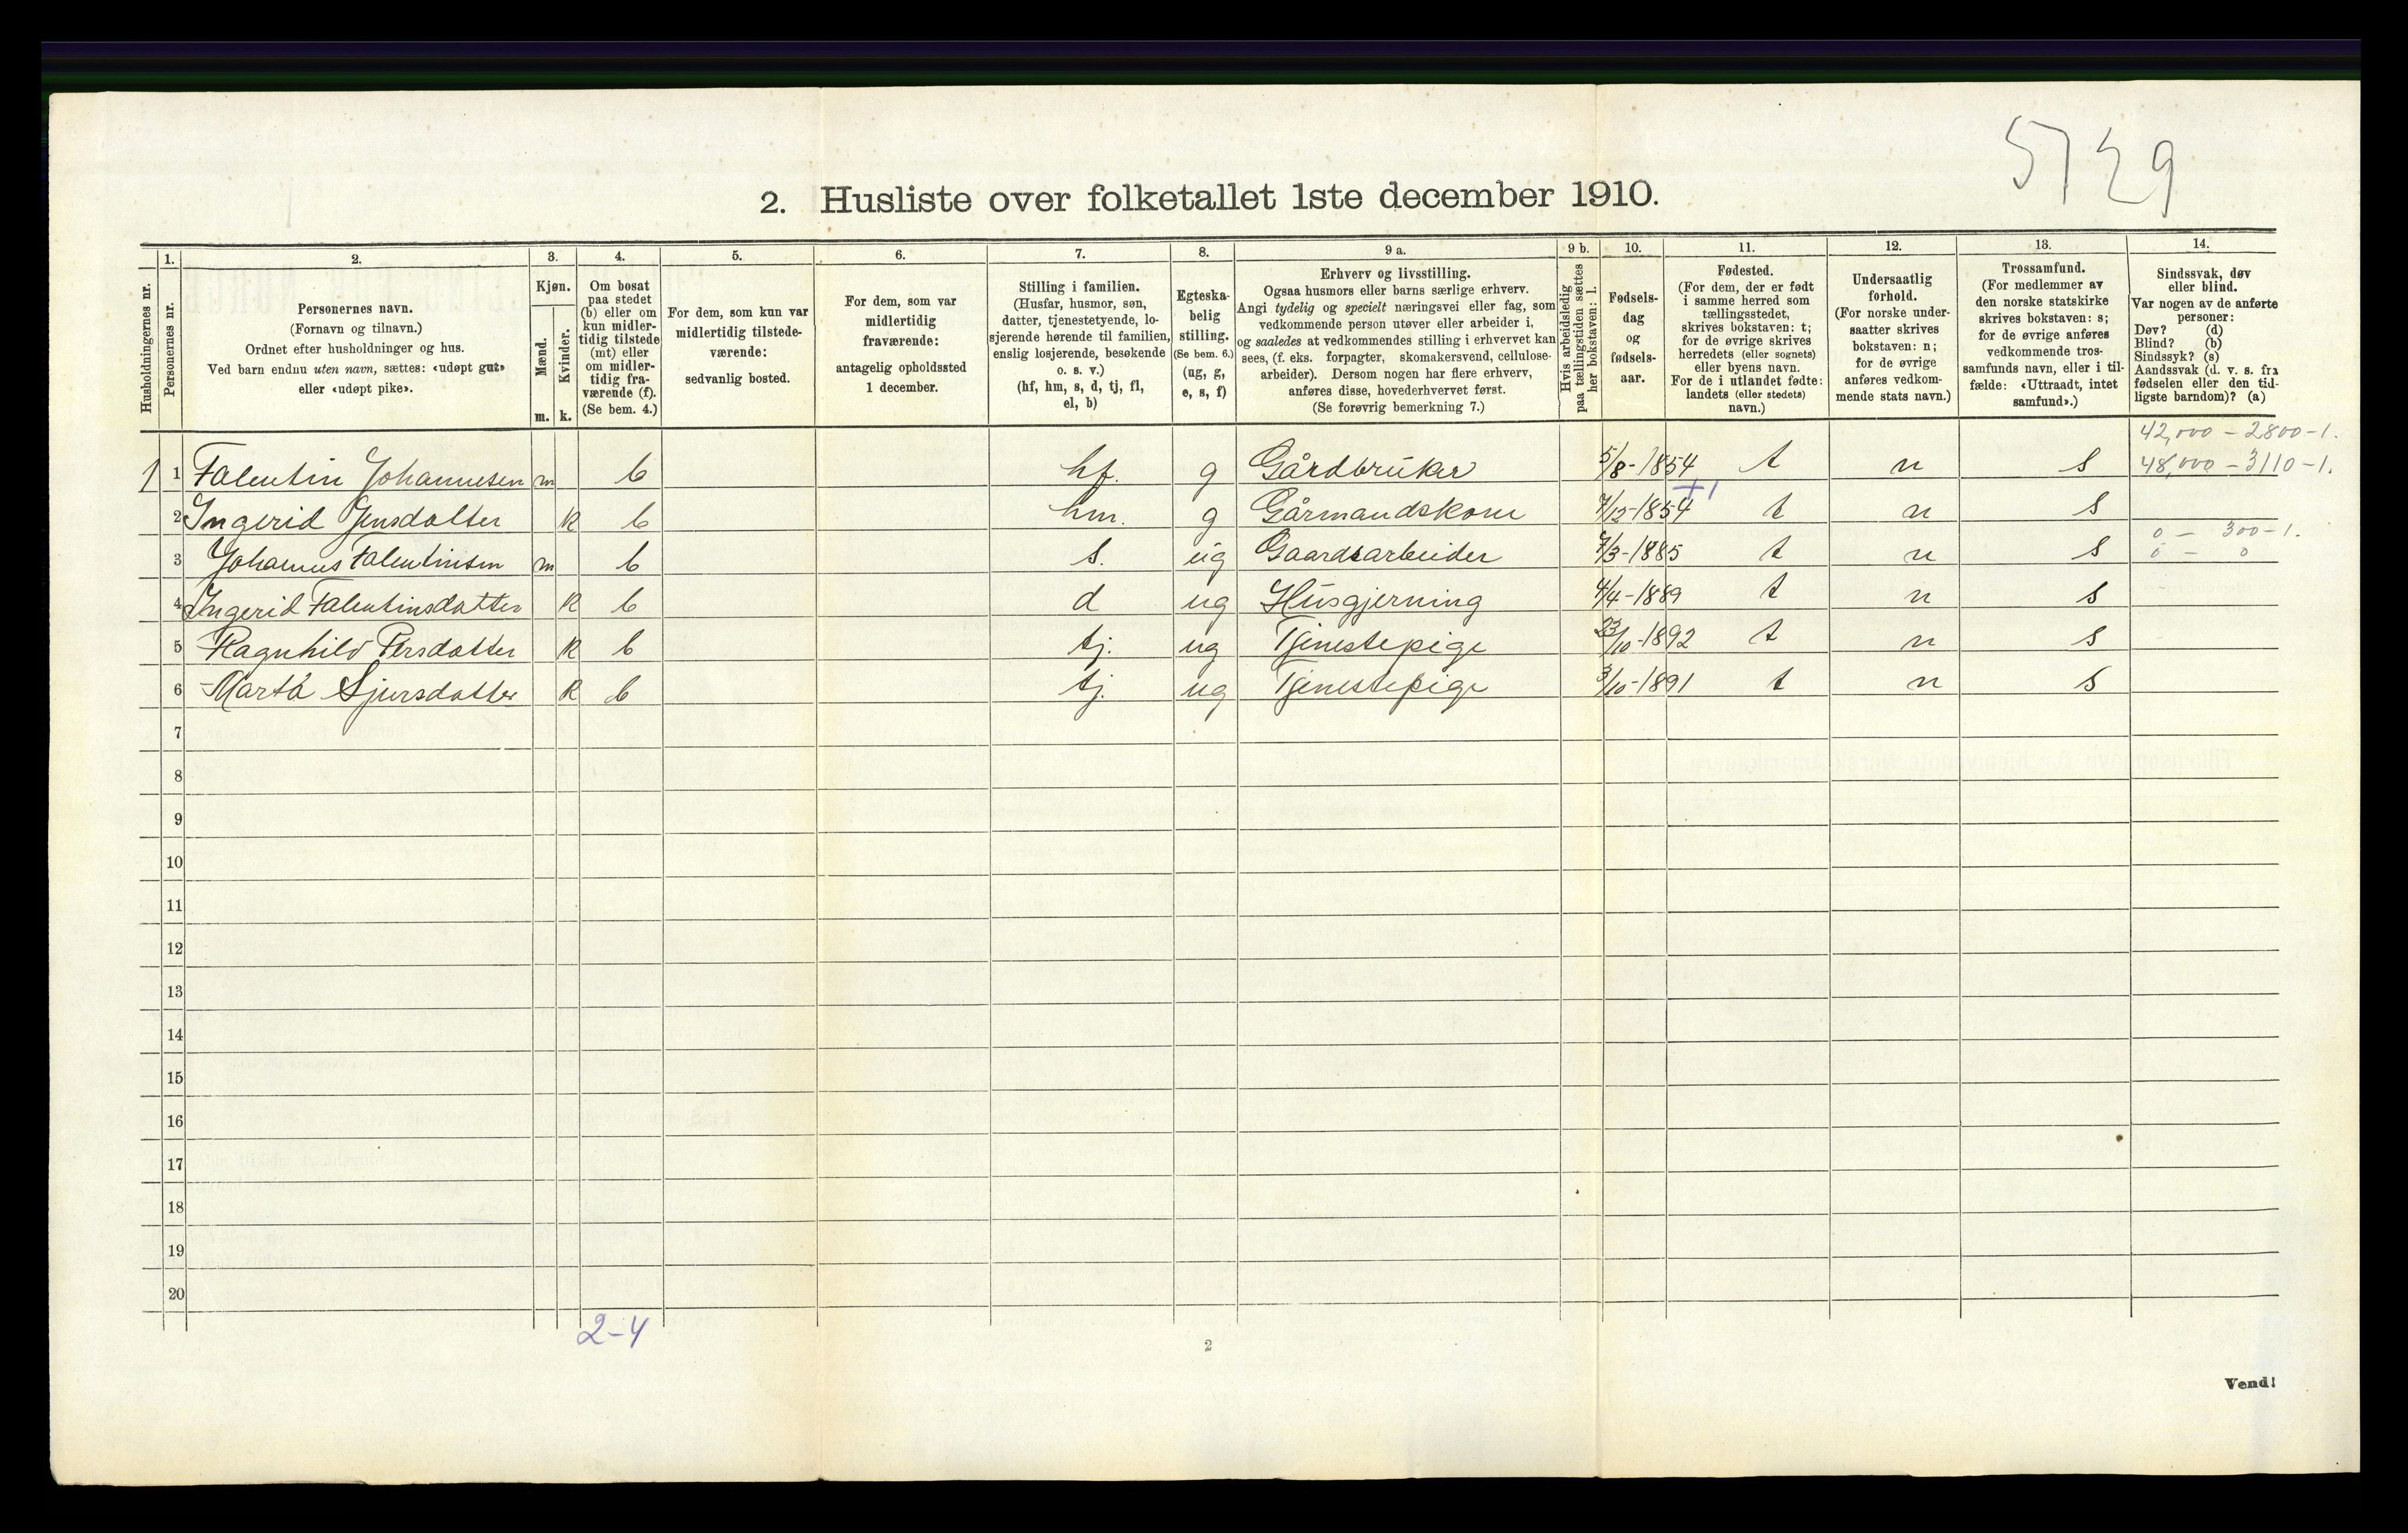 5729
2. Husliste over folketallet 1ste december 1910.
1. 2. 3. 4. 5. 6. 7. 8. 9 a. 9 b. 10. 11. 12. 13. 14.
Husholdningernes nr.
Personernes nr.
Personernes navn.
(Fornavn og tilnavn.)
Ordnet efter husholdninger og hus.
Ved barn endnu uten navn, sættes: «udøpt gut»
eller «udøpt pike».
Kjøn.
Mænd.
m.
Kvinder.
k.
Om bosat
paa stedet
(b) eller om
kun midler-
tidig tilstede
(mt) eller
om midler-
tidig fra-
værende (f).
(Se bem. 4.)
For dem, som kun var
midlertidig tilstede-
værende:
sedvanlig bosted.
For dem, som var
midlertidig
fraværende:
antagelig opholdssted
1 december.
Stilling i familien.
(Husfar, husmor, søn,
datter, tjenestetyende, lo-
sjerende hørende til familien,
enslig losjerende, besøkende
o. s. v.)
(hf, hm, s, d, tj, fl,
el, b)
Egteska-
belig
stilling.
(Se bem. 6.)
(ug, g,
e, s, f)
Erhverv og livsstilling.
Ogsaa husmors eller barns særlige erhverv.
Angi tydelig og specielt næringsvei eller fag, som
vedkommende person utøver eller arbeider i,
og saaledes at vedkommendes stilling i erhvervet kan
sees, (f. eks. forpagter, skomakersvend, cellulose-
arbeider). Dersom nogen har flere erhverv,
anføres disse, hovederhvervet først.
(Se forøvrig bemerkning 7.)
Hvis arbeidsledig
paa tællingstiden sættes
her bokstaven: l.
Fødsels-
dag
og
fødsels-
aar.
Fødested.
(For dem, der er født
i samme herred som
tællingsstedet,
skrives bokstaven: t;
for de øvrige skrives
herredets (eller sognets)
eller byens navn.
For de i utlandet fødte:
landets (eller stedets)
navn.)
Undersaatlig
forhold.
(For norske under-
saatter skrives
bokstaven: n;
for de øvrige
anføres vedkom-
mende stats navn.)
Trossamfund.
(For medlemmer av
den norske statskirke
skrives bokstaven: s;
for de øvrige anføres
vedkommende tros-
samfunds navn, eller i til-
fælde: «Uttraadt, intet
samfund».)
Sindssvak, døv
eller blind.
Var nogen av de anførte
personer:
Døv? (d)
Blind? (b)
Sindssyk? (s)
Aandssvak (d. v. s. fra
fødselen eller den tid-
ligste barndom)? (a)
42,000 – 2800 – 1.
1 1 Falentin Johannesen m b hf. g Gårdbruker 5/8-1854 t n s 48,000 – 3110 – 1.
+1
2 Ingerid Jensdatter k b hm. g Gårmandskone 7/12-1854 t n s
0 – 300 – 1.
3 Johannes Falentinsen m b s. ug Gaardsarbeider 7/3-1885 t n s 0 – 0
4 Ingerid Falentinsdatter k b d ug Husgjerning 4/4-1889 t n s
5 Ragnhild Persdatter k b tj. ug Tjenestepige 23/10-1892 t n s
6 Marta Sjursdatter k b tj. ug Tjenestepige 3/10-1891 t n s
7
8
9
10
11
12
13
14
15
16
17
18
19
20
2-4
2
Vend!